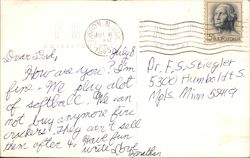 July 8
Dear Dad,
How are you? I'm
fine. We play alot
of softball. We can
not buy anymore fire
crackers. They can't sell
them after 4. Have fun
write Love
Jonathan
Dr. F. S. Stiegler
5300 Humboldt S.
Mpls. Minn 55419